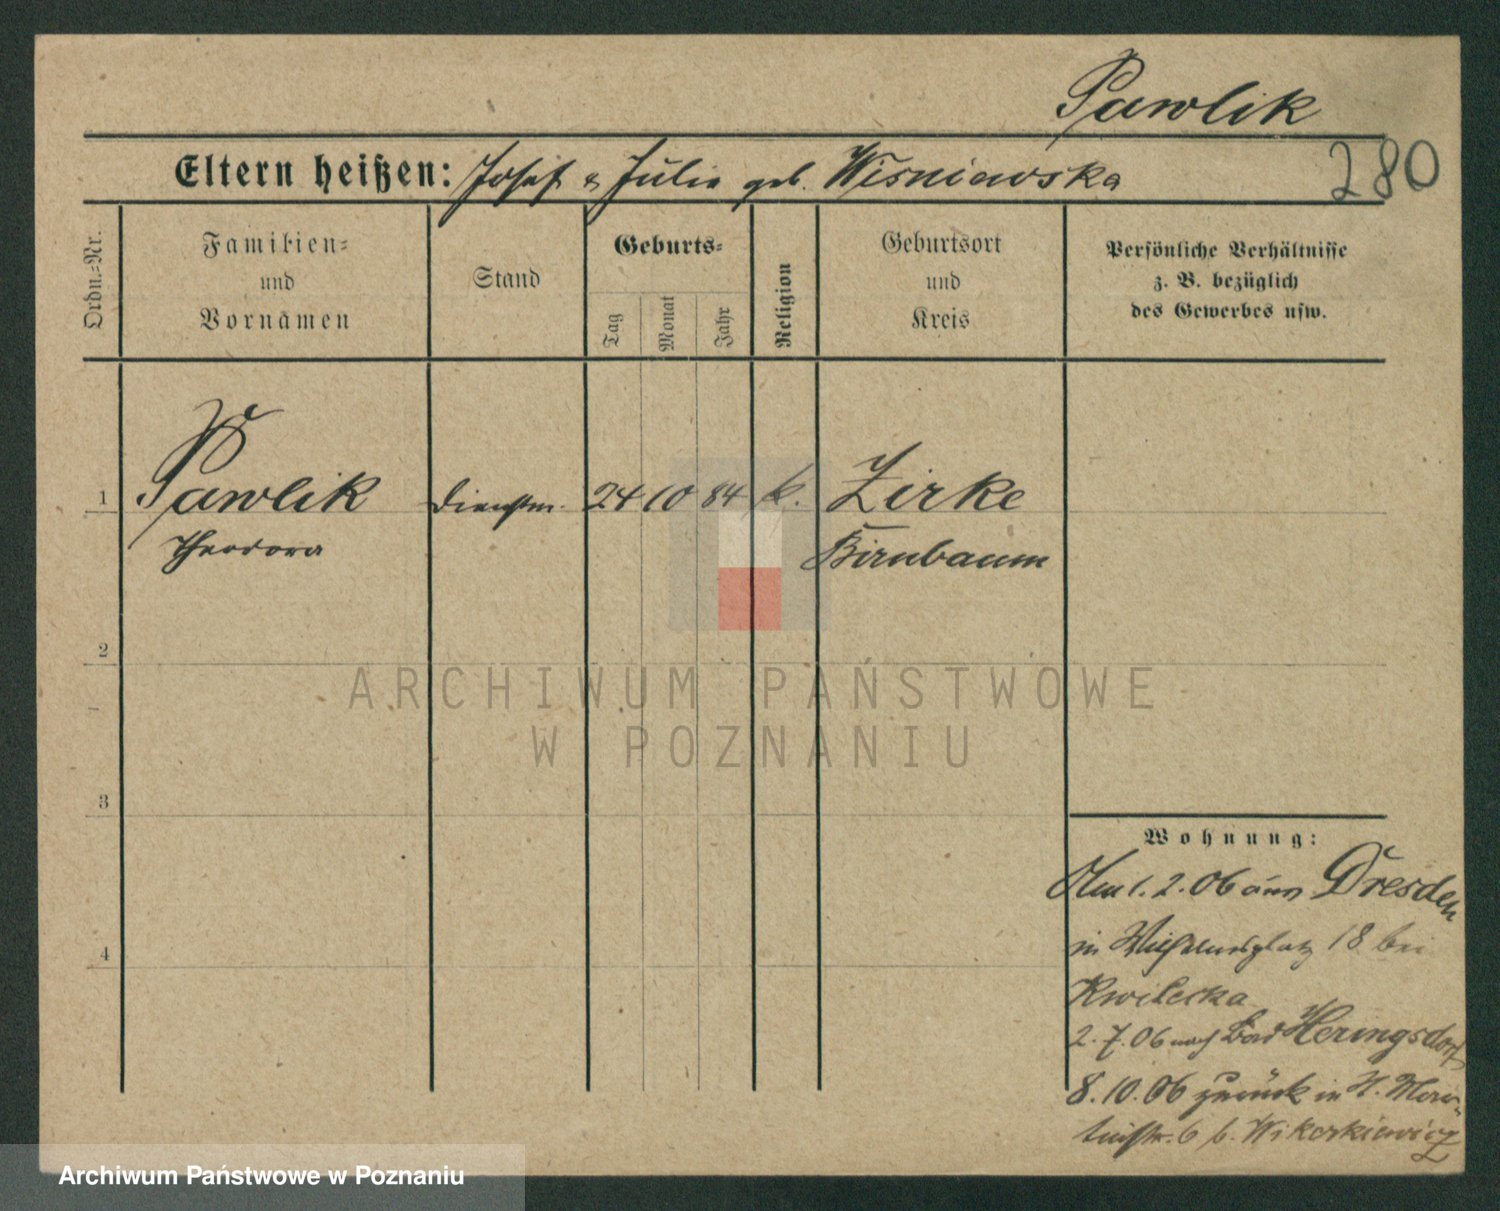 Pawlik
Eltern heißen: Josef & Julie geb. Wisniewska
280
Ordn.=Nr.
Familien=
und
Vornamen
Stand
Geburts=
Tag
Monat
Jahr
Religion
Geburtsort
und
Kreis
Persönliche Verhältnisse
z. B. bezüglich
des Gewerbes usw.
1 Pawlik Dienstm. 24 10 84 k. Zirke
Theodora Birnbaum
2
3
4
ARCHIWUM PAŃSTWOWE
W POZNANIU
Wohnung:
Am 1. 2. 06 aus Dresden
in Wilhelmsplatz 18 bei
Kwilecka
2. 7. 06 nach Bad Heringsdorf
8. 10. 06 zurück in
6 b.
Archiwum Państwowe w Poznaniu